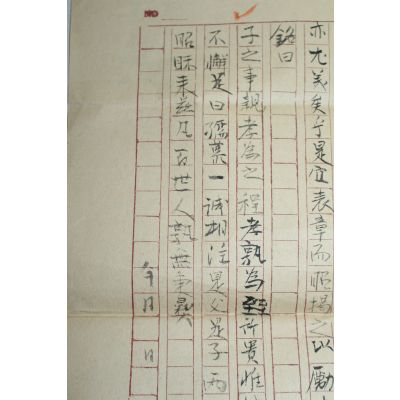 亦尤美矣乎是宜表章而昭揚之以勵
銘曰
子之事親孝為之程孝孰為至所貴惟
不懈是曰孺慕一誠相注是父是子兩
昭昧来茲凡百世人孰無事異
年月日